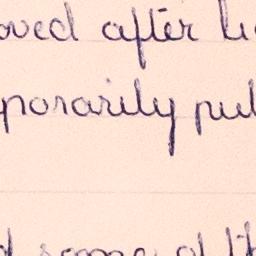 oved after li
porarily pul
d some of th